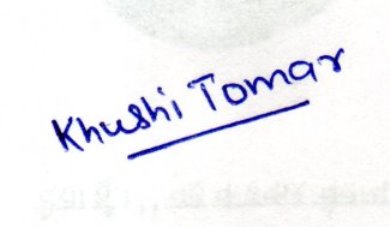 Khushi Tomar